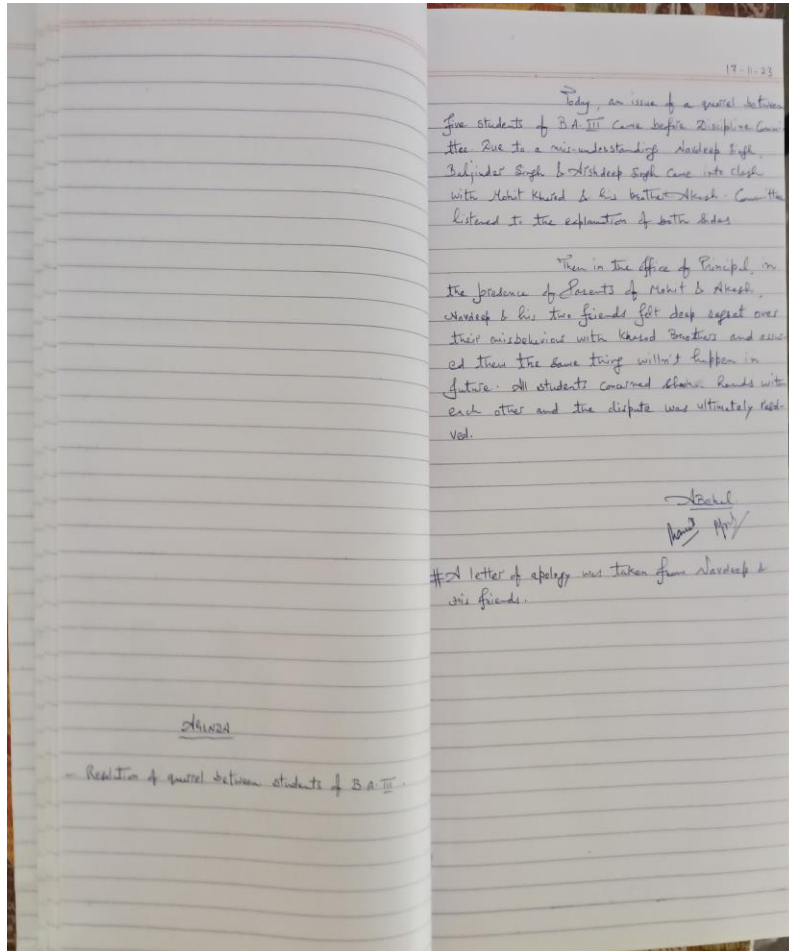 AGENDA
- Resolution of quarrel between students of B.A. III.
17-11-23
Today, an issue of a quarrel between
five students of B.A. III came before Discipline Commi-
ttee. Due to a mis-understanding Navdeep Singh,
Baljinder Singh & Arshdeep Singh came into clash
with Mohit & his brother Akash. Committee
listened to the explanation of both sides.
Then in the office of Principal, in
the presence of Parents of Mohit & Akash,
Navdeep & his two friends felt deep regret over
their misbehaviour with Brothers and assur-
ed them the same thing willn't happen in
future. All students concerned shaken hands with
each other and the dispute was ultimately resol-
ved.
# A letter of apology was taken from Navdeep &
his friends.